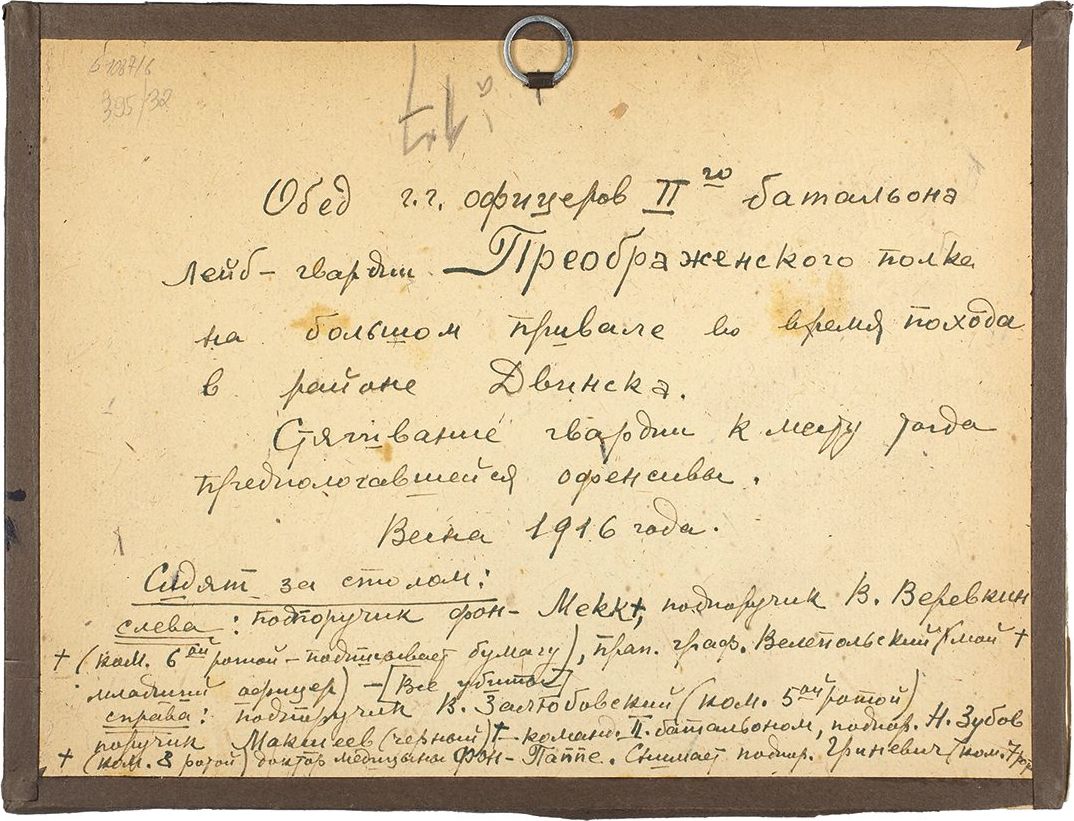 395/32
17
Обед г.г. офицеров II го батальона
Лейб-гвардии Преображенского полка
на большом привале во время похода
в районе Двинска.
Стягивание гвардии к месту тогда
предпологавшейся офенсивы.
Весна 1916 года.
Сидят за столом:
слева: подпоручик фон-Мекк+, подпоручик В. Веревкин
+ (ком. 6ой ротой - подписывает бумагу), прап. граф. Велепольский (мой +
младший офицер) - [Все убиты]
справа: подпоручик В. Залюбовский (ком. 5ой ротой)
поручик Макшеев (черный)+ - команд. II. батальоном, подпор. Н. Зубов
+ (ком. 8 ротой) доктор медицины Фон-Паппе. Снимает подпор. Гриневич (ком. 7 рот